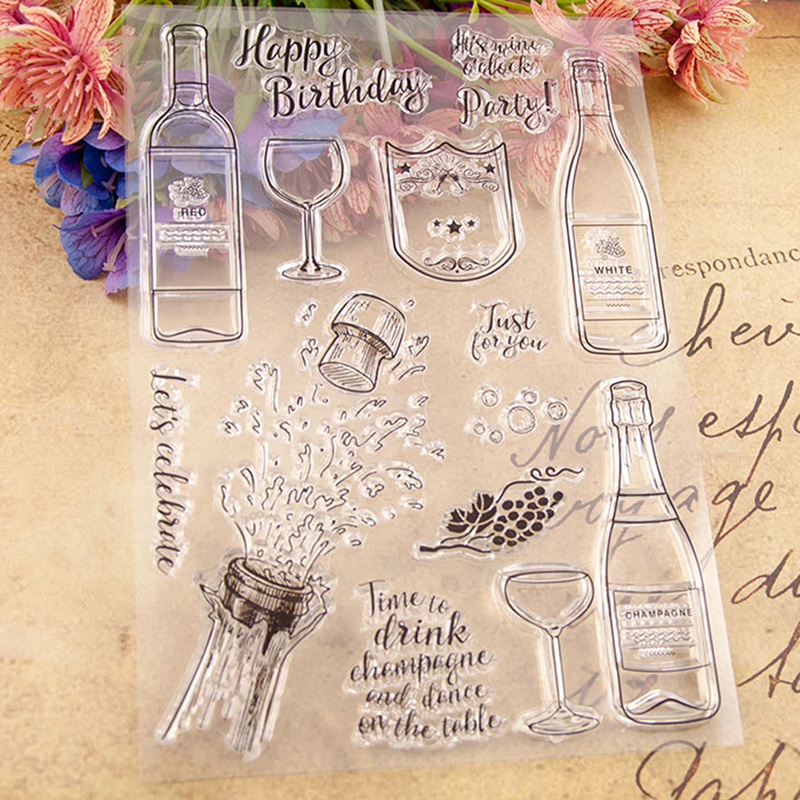 Happy
Birthday
It's wine
o'clock
Party!
RED
WHITE
respondanc
Just
for you
Let's celebrate
CHAMPAGNE
Time to
drink
champagne
and dance
on the table